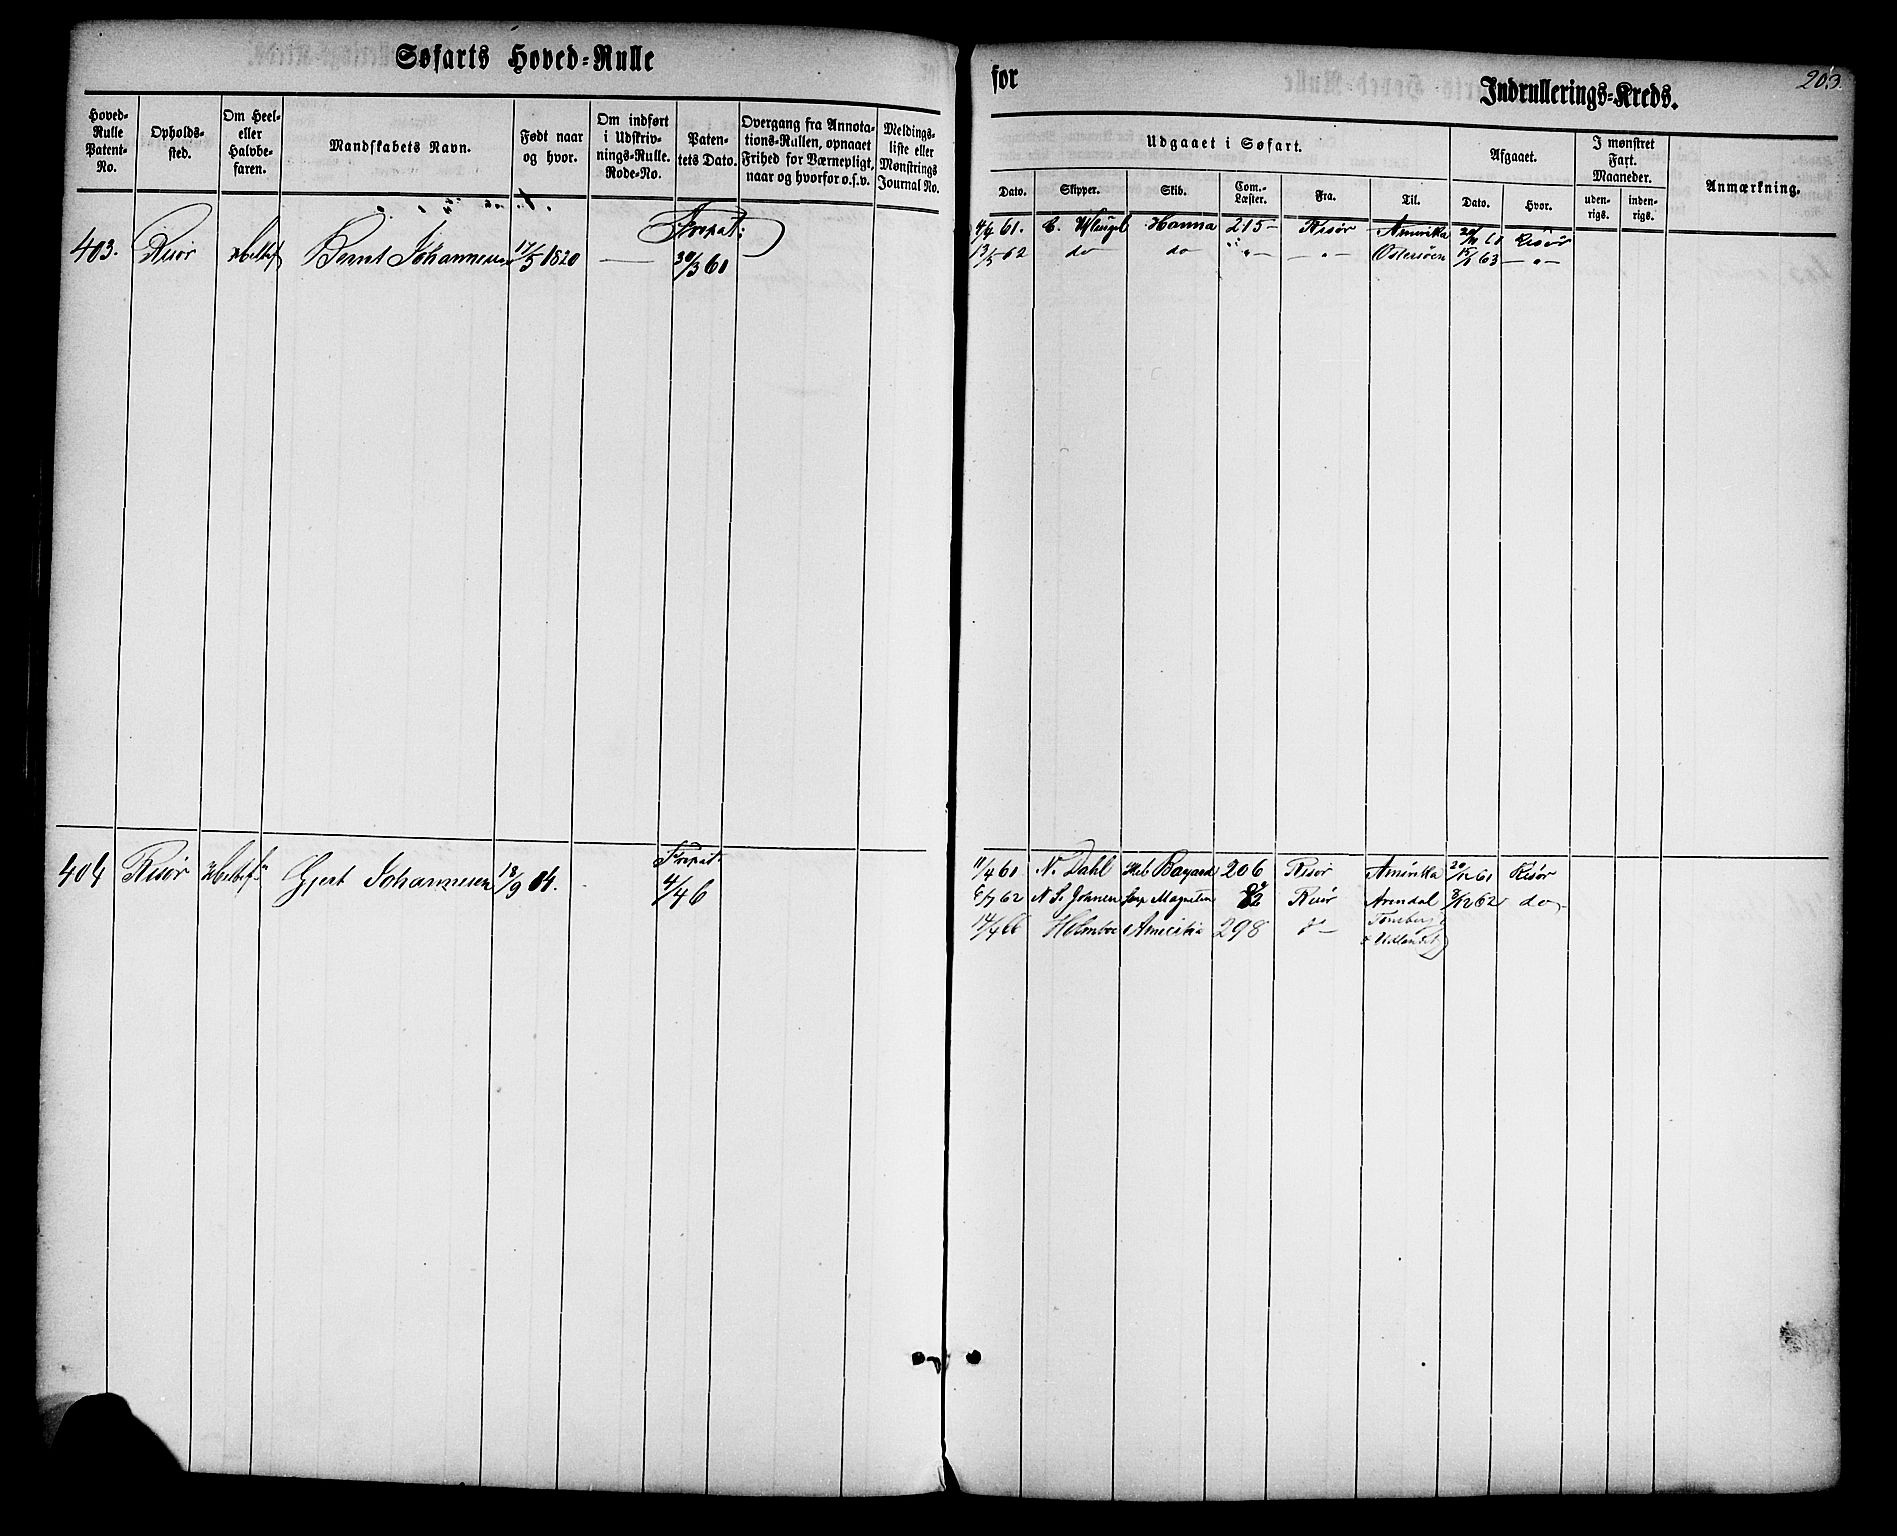 Søfarts Hoved-Rulle
for
Indrullerings-Kreds.
203.
Hoved-Rulle Patent-No.
Opholds-sted.
Om Heel- eller Halvbe-faren.
Mandskabets Navn.
Født naar og hvor.
Om indført i Udskriv-nings-Rulle. Rode-No.
Paten-tets Dato.
Overgang fra Annota-tions-Rullen, opnaaet Frihed for Værnepligt, naar og hvorfor o.s.v.
Meldings-liste eller Mønstrings Journal No.
Udgaaet i Søfart.
Afgaaet.
I mønstret Fart. Maaneder.
Anmærkning.
Dato.
Skipper.
Skib.
Com.-Læster.
Fra.
Til.
Dato.
Hvor.
uden-rigs.
inden-rigs.
403. Risør Bernt Johannesen 17/5 1820 — 30/3 61
4/4 61. C. Hanna 215 — Risør Amerikka 20/11 61 Risør
13/5 62 do do " — " — Østersøen 15/1 63 — " —
404 Risør Gjert Johannesen 18/9 04. 4/4 46
11/4 61 N. Dahl Bayard 206 Risør Amerikka 20/12 61 Risør
6/7 62 N. S. Magneten Risør Arendal 8/12 62 do
14/4 66 Amicitia 298 Tønsberg
& Udlandet